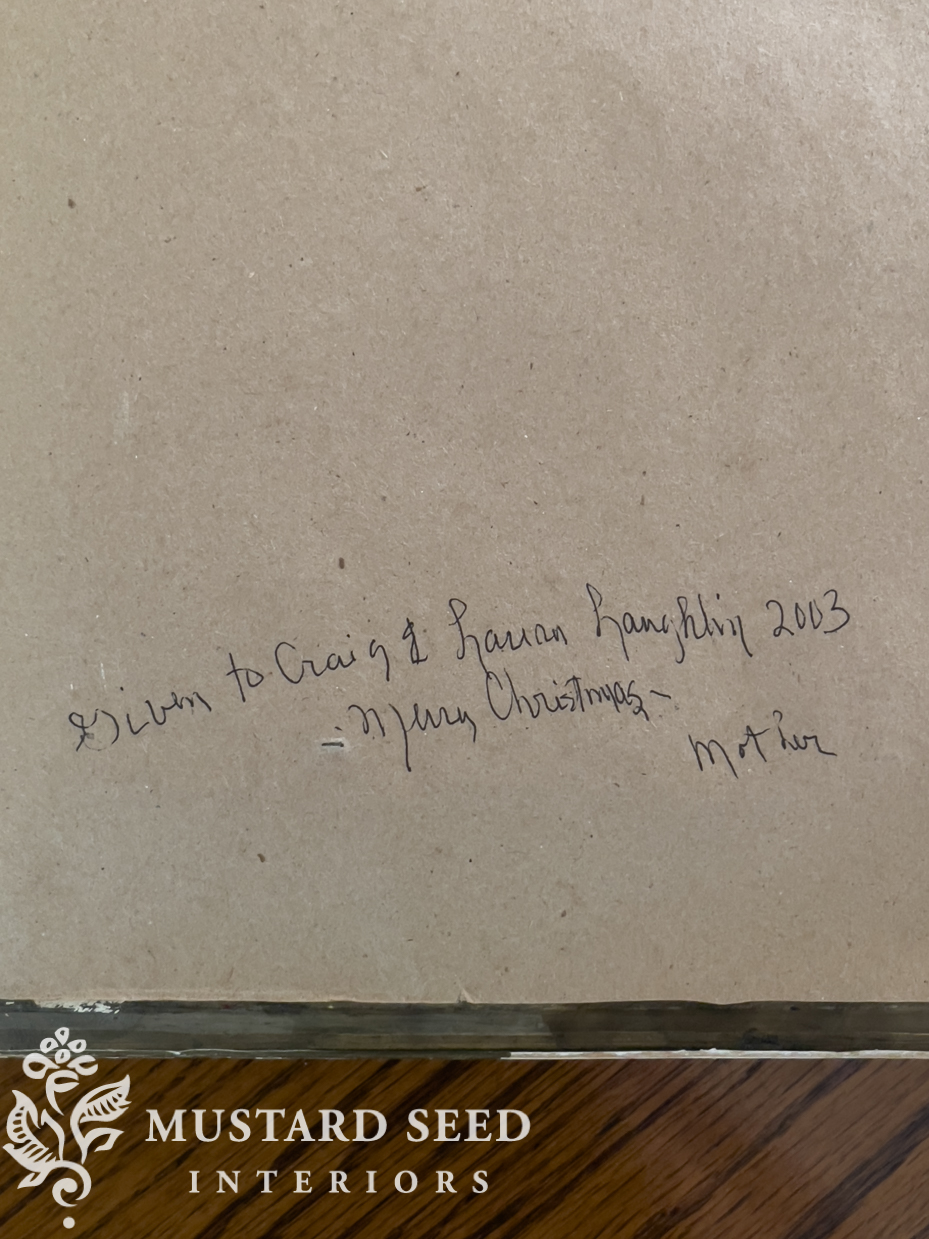 Given to Craig & Lauren Laughlin 2003
- Merry Christmas -
Mother
MUSTARD SEED
INTERIORS